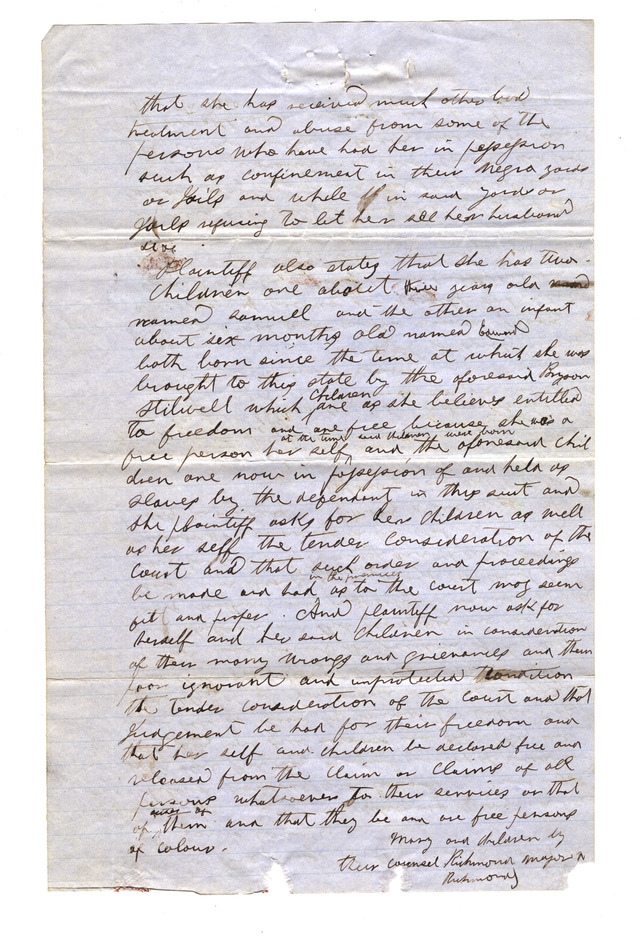 that she has received much other bad
treatment and abuse from some of the
persons who have had her in possession
such as confinement in their Negro yards
or Jails and while in said yards or
Jails refusing to let her see her husband
Plaintiff also states that she has two
children one about three years old
named Samuel and the other an infant
about six months old named Edmund
both born since the time at which she was
brought to this state by the aforesaid Bryson
Children
Stilwell which are as she believes entitled
to freedom and are free because she was a
at the time said children were born
free person her self and the aforesaid chil
dren are now in possession of and held as
slaves by the defendant in this suit and
she plaintiff asks for her children as well
as her self the tender consideration of the
Court and that such order and proceedings
in the premises
be made and had as to the court may seem
fit and proper. And plaintiff now ask for
herself and her said children in consideration
of their many wrongs and grievances and their
poor ignorant and unprotected condition
the tender consideration of the Court and that
Judgement be had for their freedom and
that her self and children be declared free and
released from the claim or claims of all
persons whatsoever to their services or that
of them and that they be and are free persons
of colour.
Mary and children by
their counsel Richmond Major &
Richmond